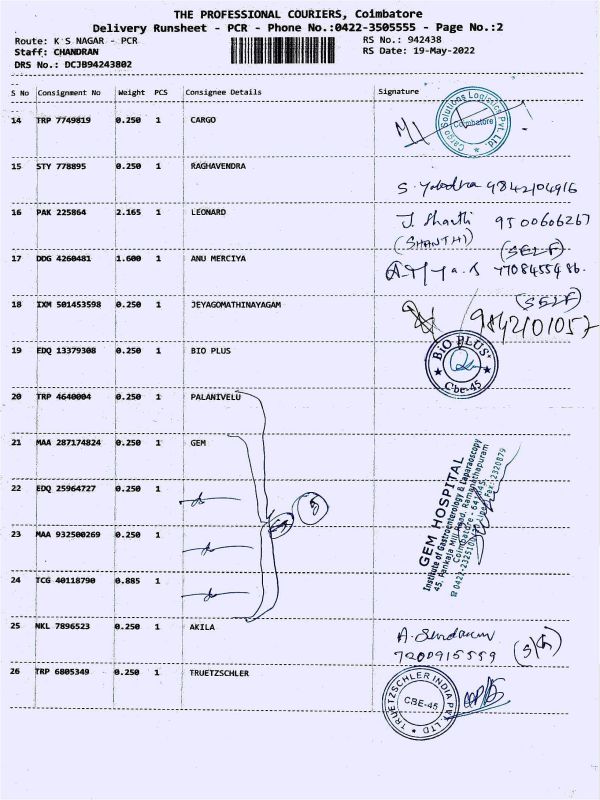 THE PROFESSIONAL COURIERS, Coimbatore
Delivery Runsheet - PCR - Phone No.:0422-3505555 - Page No.:2
Route: K S NAGAR - PCR
RS No.: 942438
Staff: CHANDRAN
RS Date: 19-May-2022
DRS No.: DCJB94243802
S No Consignment No Weight PCS Consignee Details Signature
14 TRP 7749819 0.250 1 CARGO
Cargo Solutions Logistics Pvt. Ltd. Coimbatore
15 STY 778895 0.250 1 RAGHAVENDRA
S. 9842104916
16 PAK 225864 2.165 1 LEONARD
J. Shanthi 9500606267
(SHANTHI) (SELF)
17 DDG 4260481 1.600 1 ANU MERCIYA
7708455486.
(SELF)
18 IXM 501453598 0.250 1 JEYAGOMATHINAYAGAM
9842101057
19 EDQ 13379308 0.250 1 BIO PLUS
BIO PLUS Cbe-45
20 TRP 4640004 0.250 1 PALANIVELU
21 MAA 287174824 0.250 1 GEM
22 EDQ 25964727 0.250 1
5
23 MAA 932500269 0.250 1
24 TCG 40118790 0.885 1
GEM HOSPITAL
Institute of Gastroenterology & Laparaoscopy
45, Pankaja Mill Road, Ramanathapuram
Coimbatore - 641 045.
Fax: 2320879
25 NKL 7896523 0.250 1 AKILA
A. Sundaram
7200915559
26 TRP 6805349 0.250 1 TRUETZSCHLER
TRUETZSCHLER INDIA PVT. LTD. CBE-45